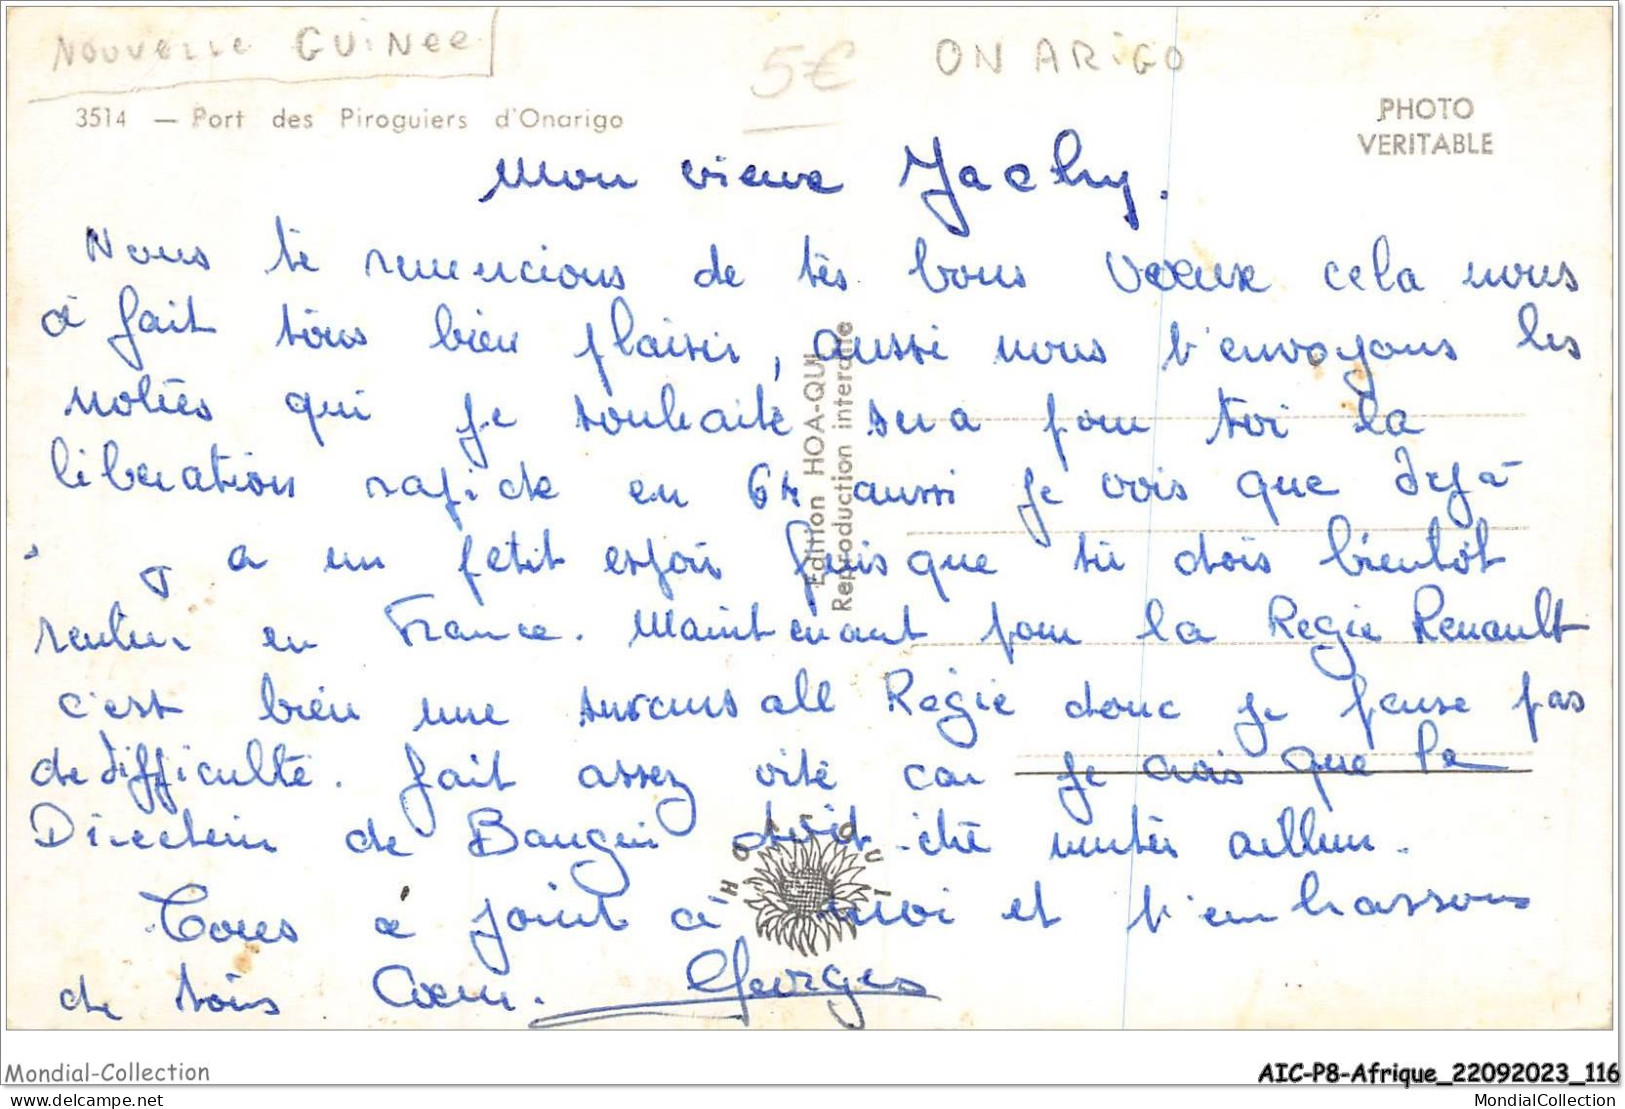 NOUVELLE GUINEE
5€
ON ARIGO
3514 — Port des Piroguiers d'Onarigo
PHOTO
VERITABLE
Mon vieux Jacky.
Nous te remercions de tes bons voeux cela nous
a fait tous bien plaisir, aussi nous t'envoyons les
notres qui je souhaite sera pour toi la
liberation rapide en 64 aussi je vois que déjà
a un petit espoir puisque tu dois bientôt
rentrer en France. Maintenant pour la Regie Renault
c'est bien une sucursall Regie donc je pense pas
de difficulté. fait assez vite car je crois que le
Directeur de doit mutér ailleur.
Tous à joint à moi et t'embrassons
de tous Coeur. Georges
Edition HOA-QUI
Reproduction interdite
HOA-QUI
Mondial-Collection
AIC-P8-Afrique_22092023_116
delcampe.net
MondialCollection